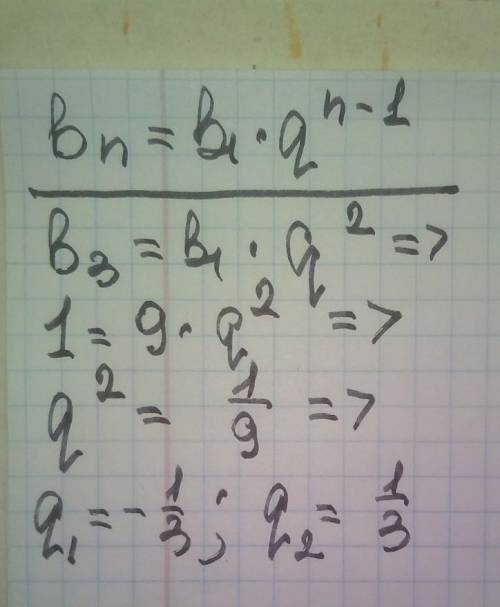 bₙ = b₁ · qⁿ⁻¹
b₃ = b₁ · q² =>
1 = 9 · q² =>
q² = 1/9 =>
q₁ = -1/3 ; q₂ = 1/3